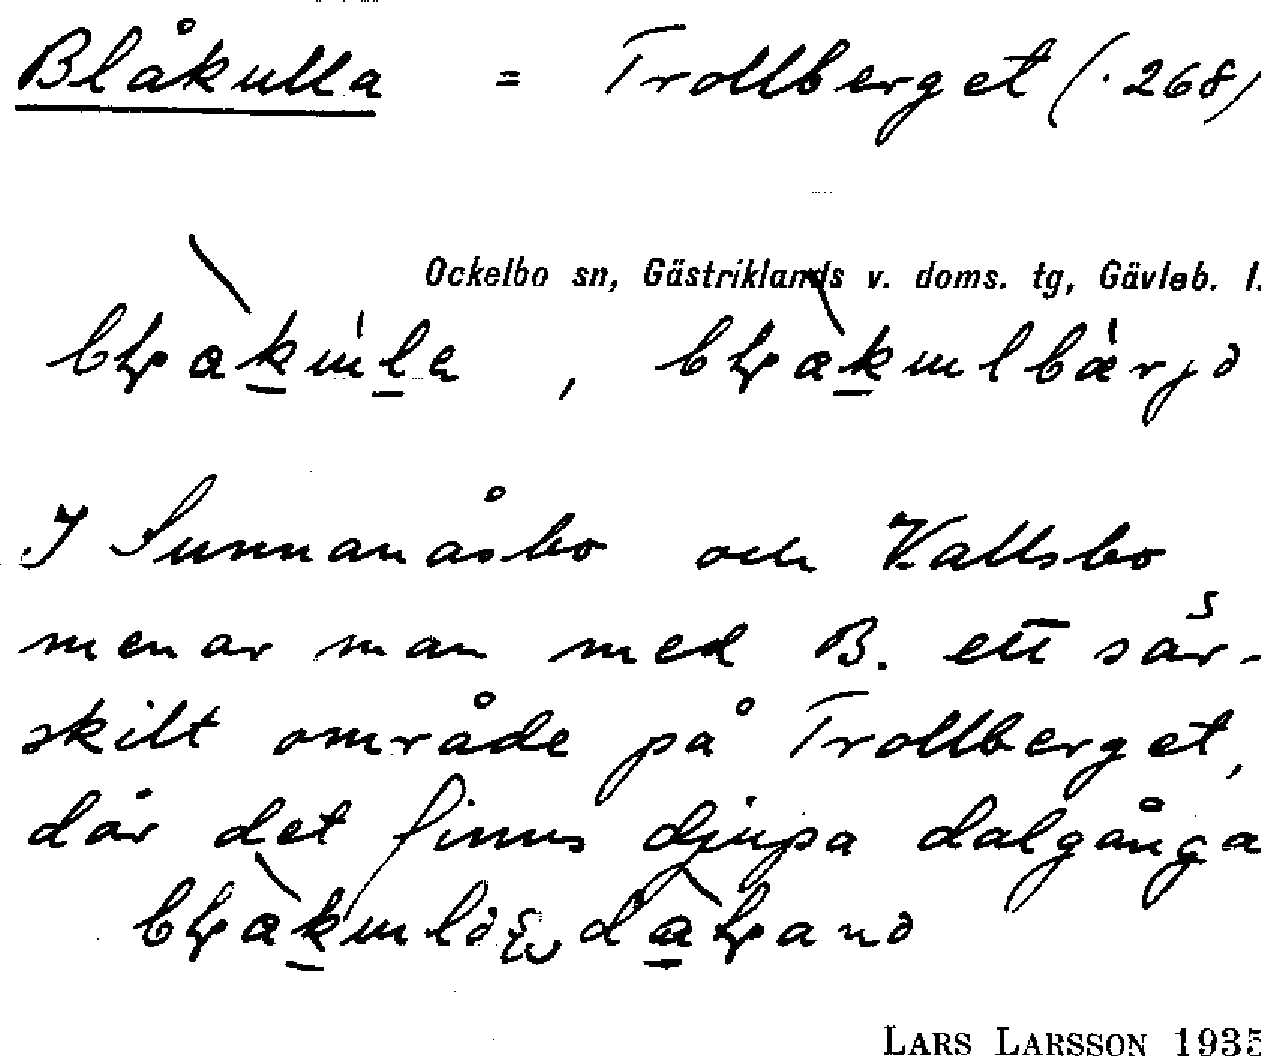 Blåkulla = Trollberget (.268)
Ockelbo sn, Gästriklands v. doms. tg, Gävleb. l.
I Sunnanåsbo och Vallsbo
menar man med B. ett sär-
skilt område på Trollberget,
där det finns djupa dalgånga
LARS LARSSON 1935